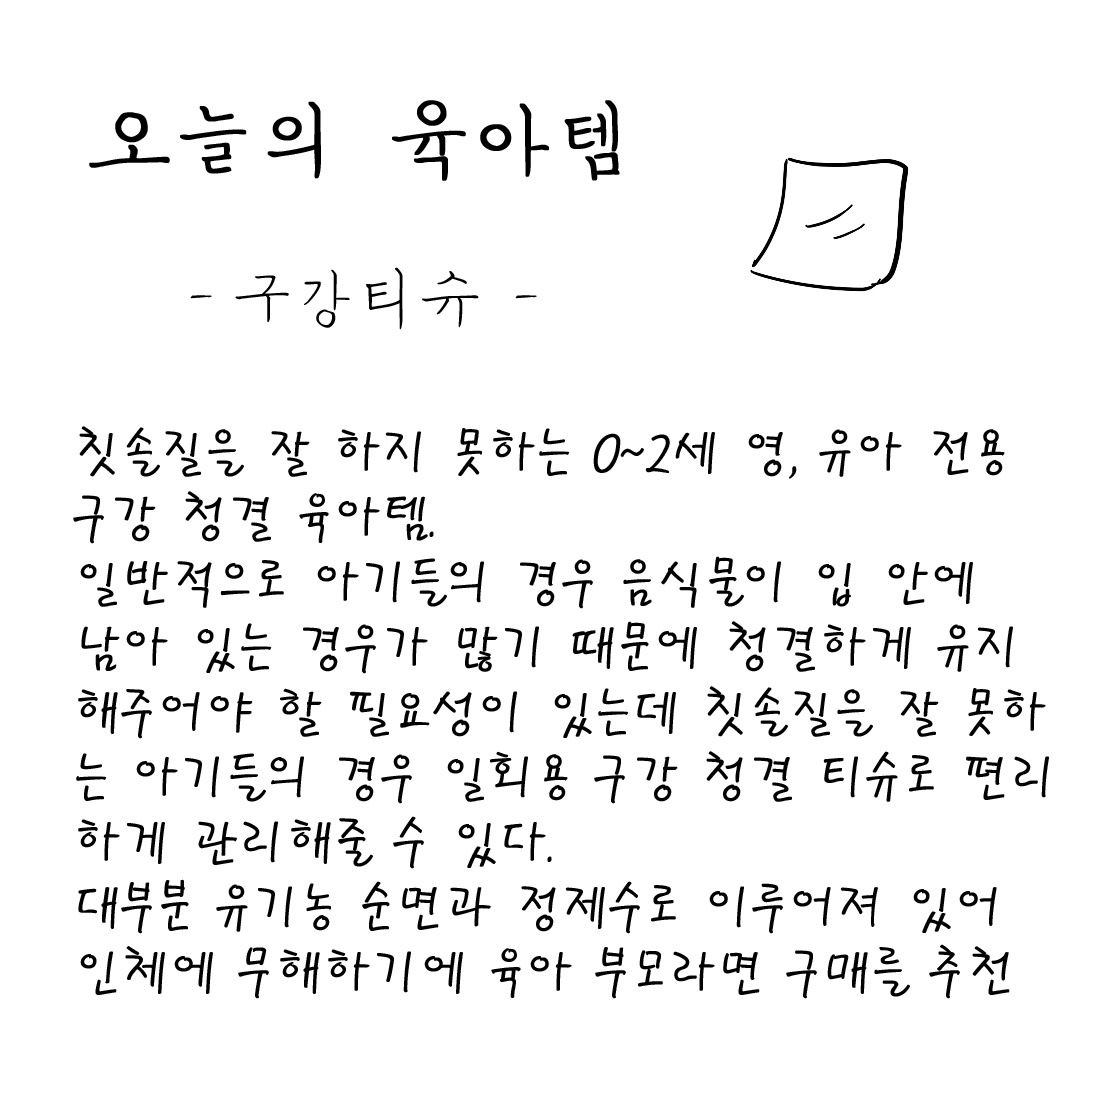 오늘의 육아템
- 구강티슈 -
칫솔질을 잘 하지 못하는 0~2세 영, 유아 전용
구강 청결 육아템.
일반적으로 아기들의 경우 음식물이 입 안에
남아 있는 경우가 많기 때문에 청결하게 유지
해주어야 할 필요성이 있는데 칫솔질을 잘 못하
는 아기들의 경우 일회용 구강 청결 티슈로 편리
하게 관리해줄 수 있다.
대부분 유기농 순면과 정제수로 이루어져 있어
인체에 무해하기에 육아 부모라면 구매를 추천